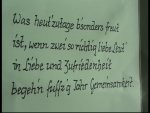 Was heutzutage b'sonders freut
ist, wenn zwei so richtig liebe Leut'
in Liebe und Zufriedenheit
begeh'n fuffz'g Jahr Gemeinsamkeit.